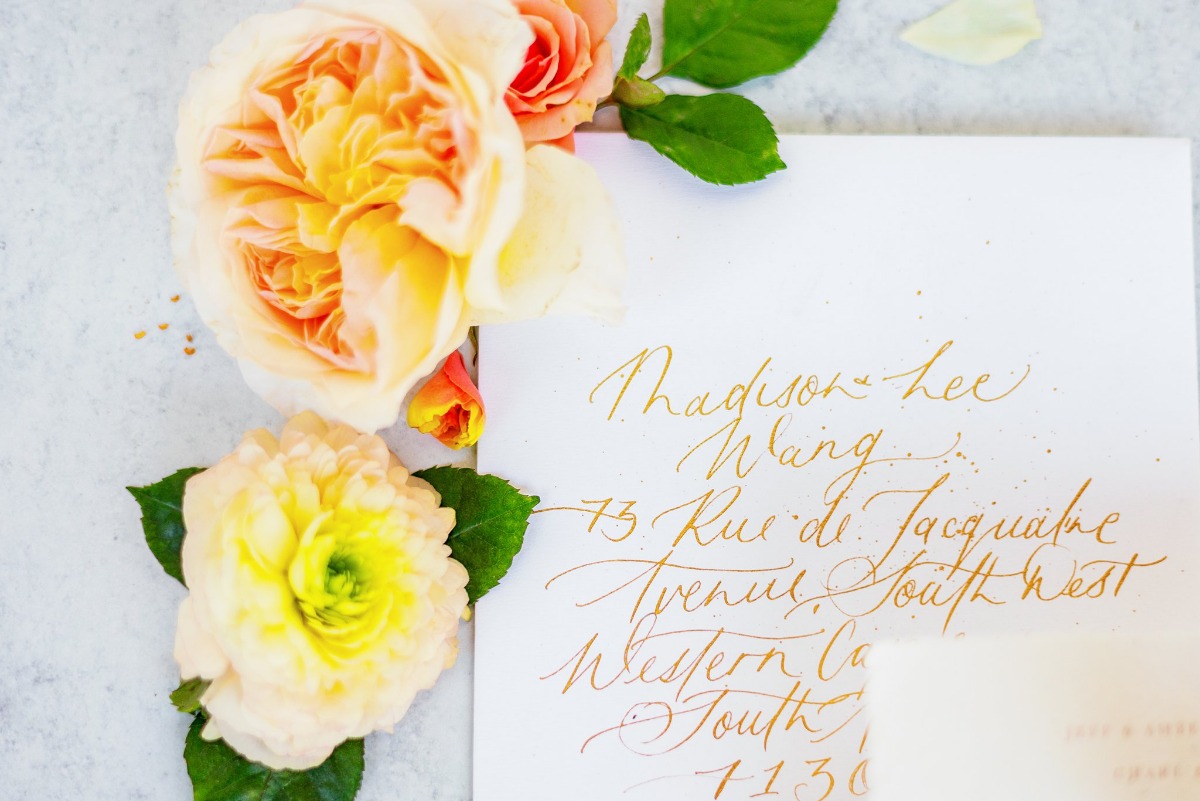 Madison & Lee
Wang
73 Rue de Jacqualine
Avenue South West
Western Ca
South
7130